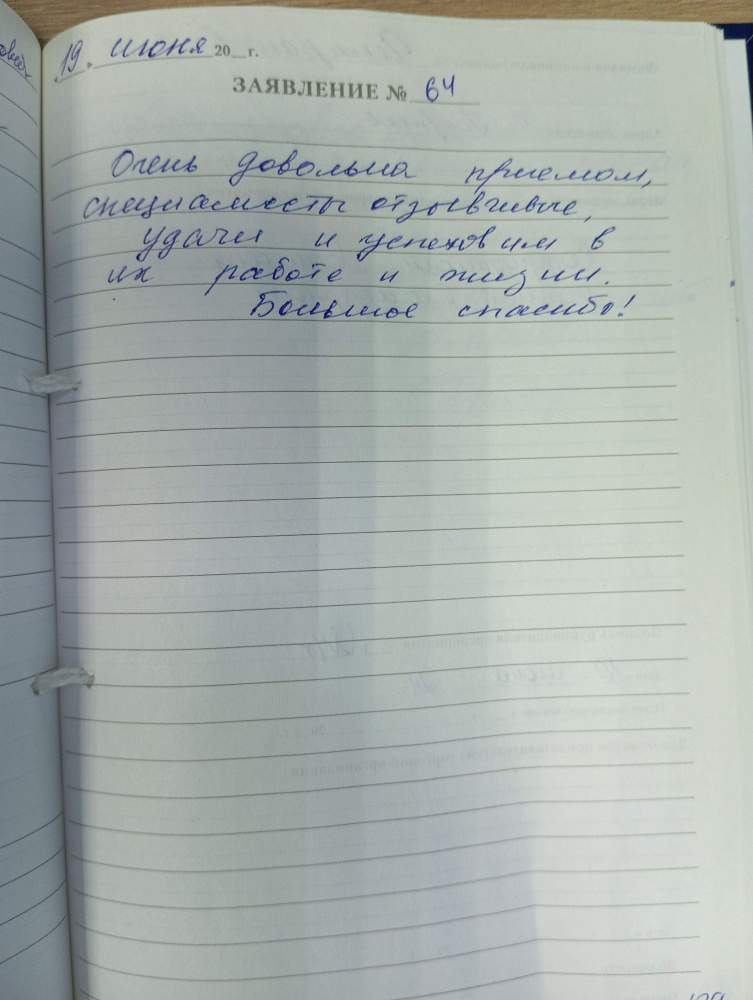 19. июня 20__г.
ЗАЯВЛЕНИЕ № 64
Очень довольна приемом,
специалисты отзывчивые,
удачи и успехов им в
их работе и жизни.
Большое спасибо!